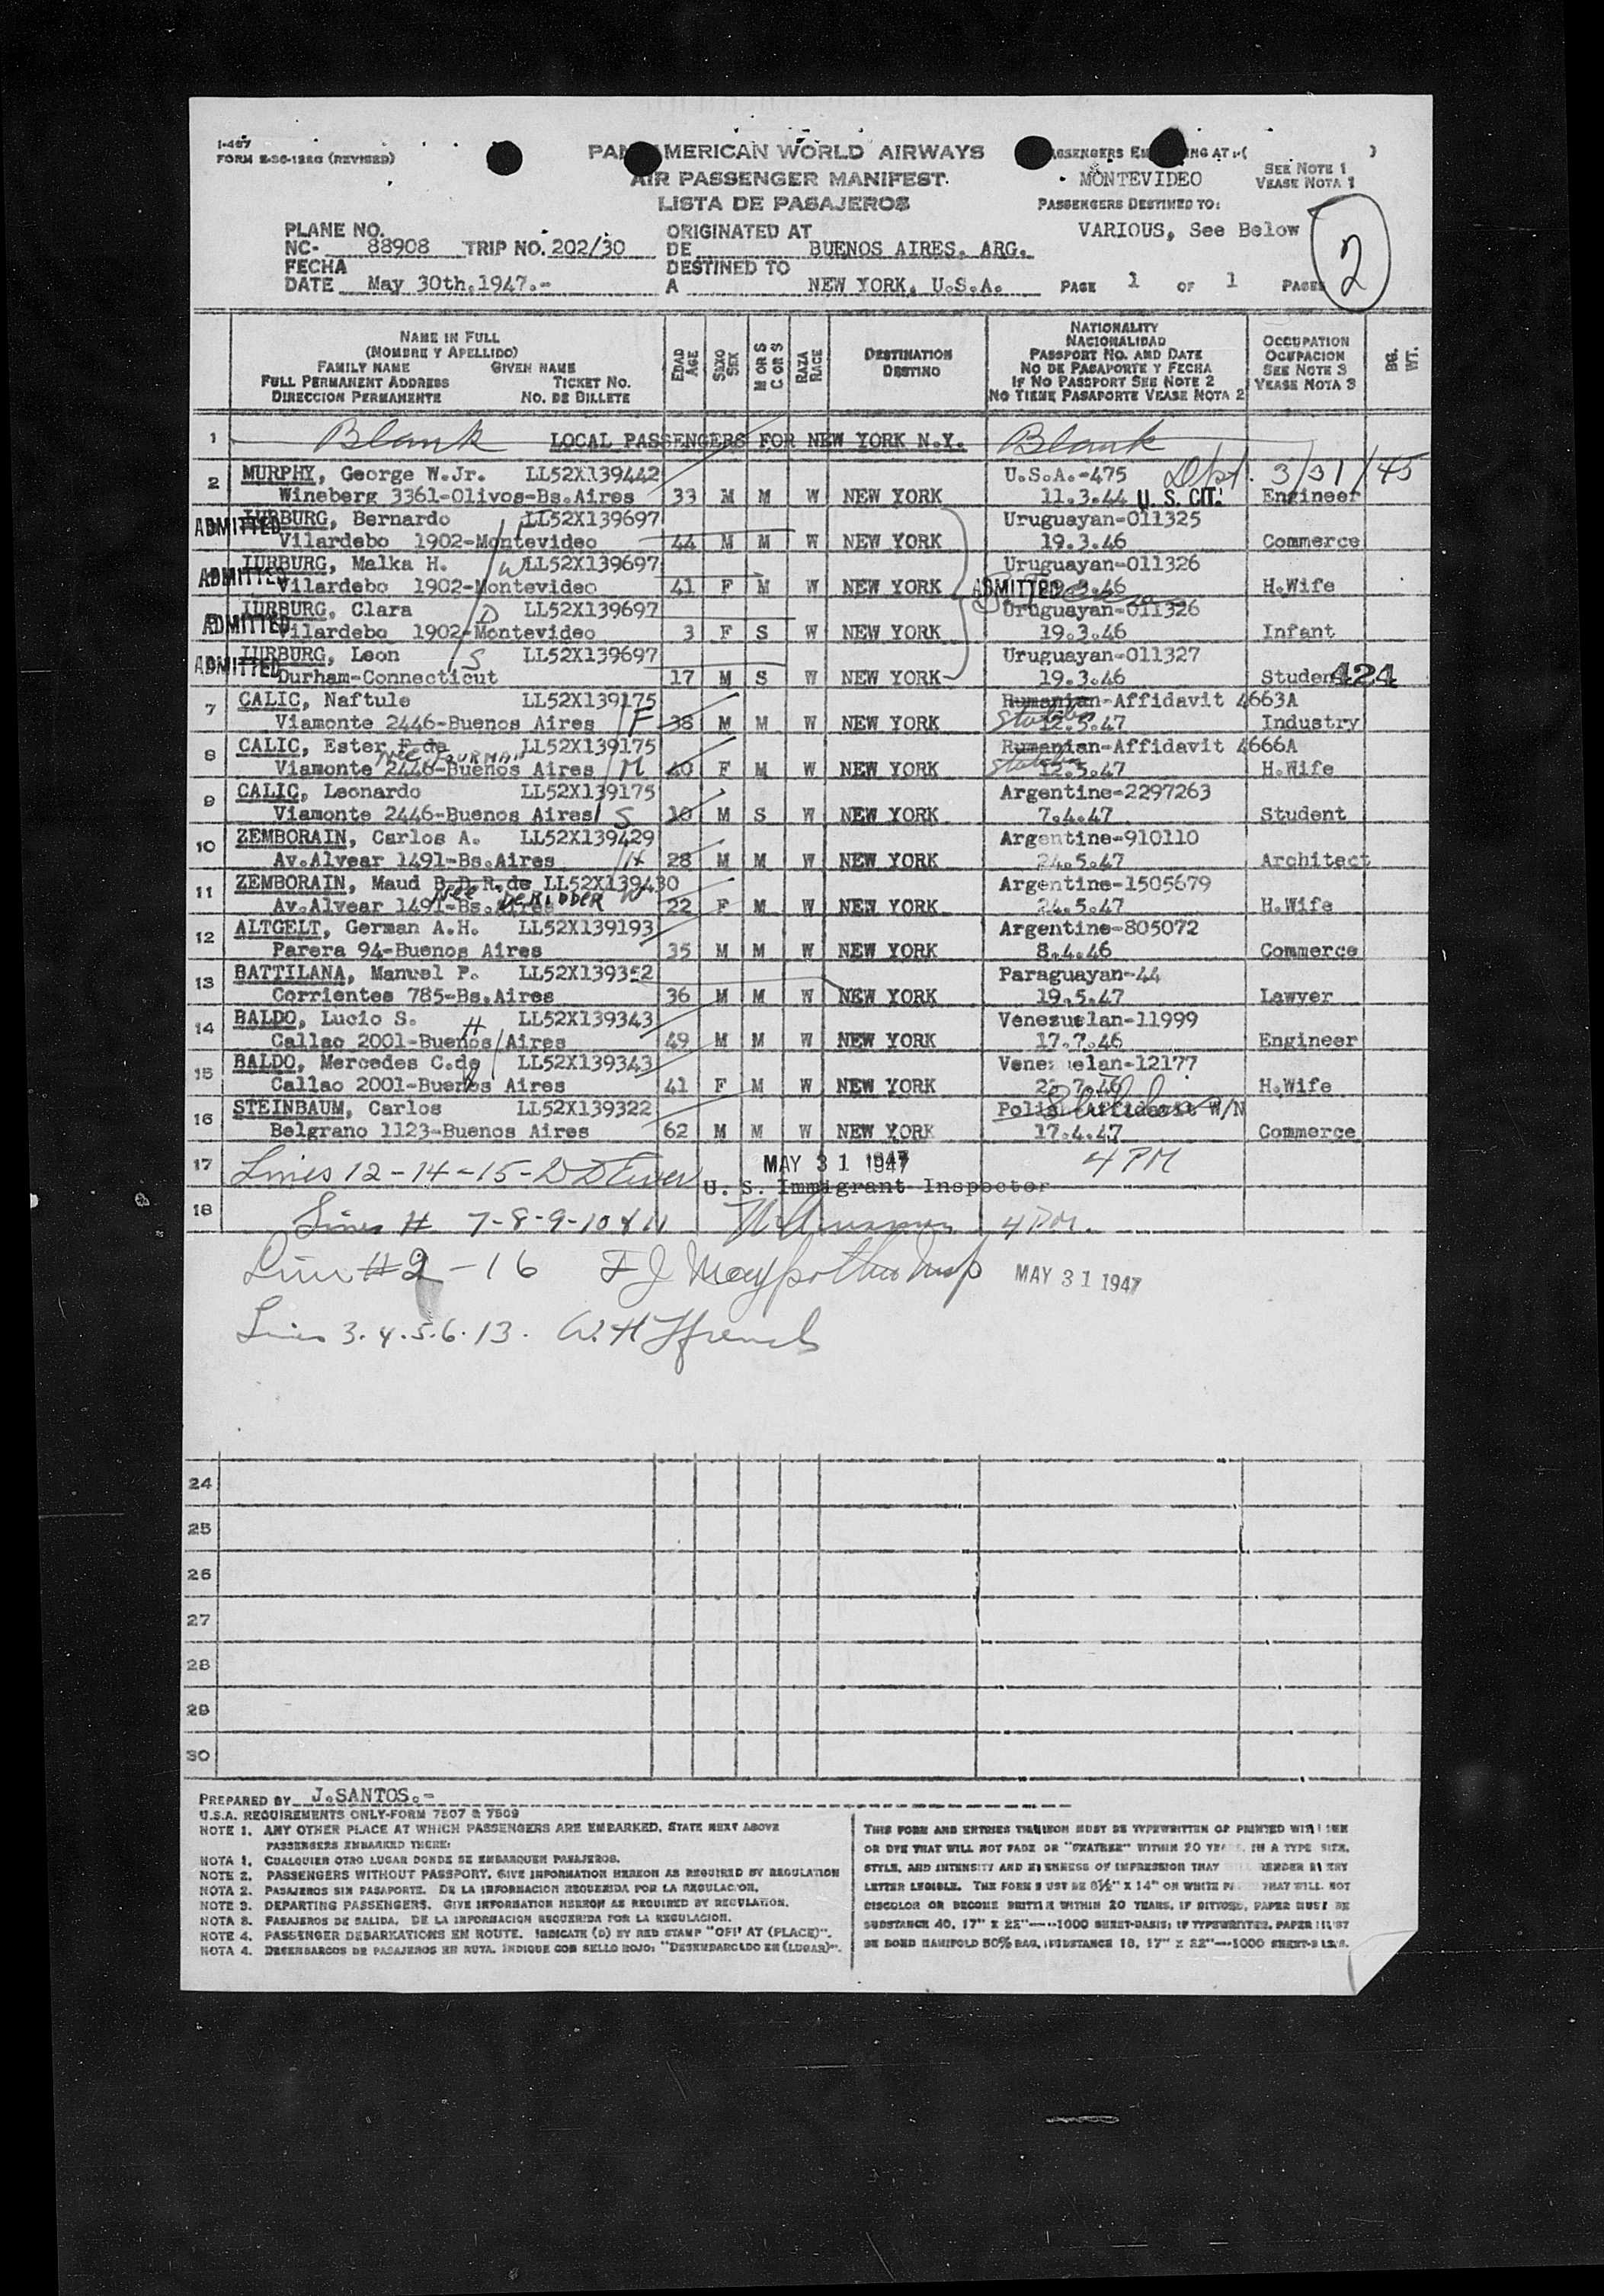 I-467
FORM E-36-122G (REVISED)
PAN AMERICAN WORLD AIRWAYS
AIR PASSENGER MANIFEST
LISTA DE PASAJEROS
MONTEVIDEO
SEE NOTE 1
VEASE NOTA 1
PASSENGERS DESTINED TO:
VARIOUS, See Below
2
PLANE NO.
NC- 88908 TRIP NO. 202/30
FECHA
DATE May 30th.1947.-
ORIGINATED AT
DE BUENOS AIRES, ARG.
DESTINED TO
A NEW YORK, U.S.A.
PAGE 1 OF 1 PAGES
NAME IN FULL
(NOMBRE Y APELLIDO)
FAMILY NAME GIVEN NAME
FULL PERMANENT ADDRESS TICKET NO.
DIRECCION PERMANENTE NO. DE BILLETE
EDAD AGE
SEXO SEX
M OR S C OR S
RAZA RACE
DESTINATION
DESTINO
NATIONALITY
NACIONALIDAD
PASSPORT NO. AND DATE
NO DE PASAPORTE Y FECHA
IF NO PASSPORT SEE NOTE 2
NO TIENE PASAPORTE VEASE NOTA 2
OCCUPATION
OCUPACION
SEE NOTE 3
VEASE NOTA 3
BG. WT.
1 Blank LOCAL PASSENGERS FOR NEW YORK N.Y. Blank
2 MURPHY, George W.Jr. LL52X139442 U.S.A.-475 Dept. 3/31/45
Wineberg 3361-Olivos-Bs.Aires 33 M M W NEW YORK 11.3.44 U. S. CIT. Engineer
ADMITTED IURBURG, Bernardo LL52X139697 Uruguayan-011325
Vilardebo 1902-Montevideo 44 M M W NEW YORK 19.3.46 Commerce
ADMITTED IURBURG, Malka H. W LL52X139697 Uruguayan-011326
Vilardebo 1902-Montevideo 41 F M W NEW YORK ADMITTED .3.46 H.Wife
ADMITTED IURBURG, Clara D LL52X139697 Uruguayan-011326
Vilardebo 1902-Montevideo 3 F S W NEW YORK 19.3.46 Infant
ADMITTED IURBURG, Leon S LL52X139697 Uruguayan-011327
Durham-Connecticut 17 M S W NEW YORK 19.3.46 Student 424
7 CALIC, Naftule LL52X139175 Rumanian-Affidavit 4663A
Viamonte 2446-Buenos Aires F 38 M M W NEW YORK 12.5.47 Industry
8 CALIC, Ester F.de LL52X139175 Rumanian-Affidavit 4666A
Viamonte 2446-Buenos Aires M 40 F M W NEW YORK 12.5.47 H.Wife
9 CALIC, Leonardo LL52X139175 Argentine-2297263
Viamonte 2446-Buenos Aires S 10 M S W NEW YORK 7.4.47 Student
10 ZEMBORAIN, Carlos A. LL52X139429 Argentine-910110
Av.Alvear 1491-Bs.Aires H 28 M M W NEW YORK 24.5.47 Architect
11 ZEMBORAIN, Maud B.D.R.de LL52X139430 Argentine-1505679
NEE DERIDDER W
Av.Alvear 1491-Bs.Aires 22 F M W NEW YORK 24.5.47 H.Wife
12 ALTGELT, German A.H. LL52X139193 Argentine-805072
Parera 94-Buenos Aires 35 M M W NEW YORK 8.4.46 Commerce
13 BATTILANA, Manuel P. LL52X139352 Paraguayan-44
Corrientes 785-Bs.Aires 36 M M W NEW YORK 19.5.47 Lawyer
14 BALDO, Lucio S. H LL52X139343 Venezuelan-11999
Callao 2001-Buenos Aires 49 M M W NEW YORK 17.7.46 Engineer
15 BALDO, Mercedes C.de LL52X139343 Venezuelan-12177
Callao 2001-Buenos Aires 41 F M W NEW YORK .7.46 H.Wife
16 STEINBAUM, Carlos LL52X139322 Polish-Affidavit W/N
Belgrano 1123-Buenos Aires 62 M M W NEW YORK 17.4.47 Commerce
17 Lines 12-14-15- MAY 31 1947 4 PM
U. S. Immigrant Inspector
18 Lines # 7-8-9-10 & 11 4 PM.
Line #2-16 MAY 31 1947
Lines 3.4.5.6.13.
24
25
26
27
28
29
30
PREPARED BY J.SANTOS.-
U.S.A. REQUIREMENTS ONLY-FORM 7507 & 7509
NOTE 1. ANY OTHER PLACE AT WHICH PASSENGERS ARE EMBARKED, STATE NEXT ABOVE
PASSENGERS EMBARKED THERE:
NOTA 1. CUALQUIER OTRO LUGAR DONDE SE EMBARQUEN PASAJEROS.
NOTE 2. PASSENGERS WITHOUT PASSPORT, GIVE INFORMATION HEREON AS REQUIRED BY REGULATION
NOTA 2. PASAJEROS SIN PASAPORTE. DE LA INFORMACION REQUERIDA POR LA REGULACION.
NOTE 3. DEPARTING PASSENGERS. GIVE INFORMATION HEREON AS REQUIRED BY REGULATION.
NOTA 3. PASAJEROS DE SALIDA, DE LA INFORMACION REQUERIDA POR LA REGULACION.
NOTE 4. PASSENGER DEBARKATIONS EN ROUTE. INDICATE (D) BY RED STAMP "OFF AT (PLACE)".
NOTA 4. DESEMBARCOS DE PASAJEROS EN RUTA. INDIQUE CON SELLO ROJO: "DESEMBARCADO EN (LUGAR)".
THIS FORM AND ENTRIES THEREON MUST BE TYPEWRITTEN OR PRINTED WITH INK
OR DYE THAT WILL NOT FADE OR "FEATHER" WITHIN 20 YEARS, IN A TYPE SIZE,
STYLE, AND INTENSITY AND EVENNESS OF IMPRESSION THAT WILL RENDER EVERY
LETTER LEGIBLE. THE FORM MUST BE 8½" X 14" ON WHITE PAPER THAT WILL NOT
DISCOLOR OR BECOME BRITTLE WITHIN 20 YEARS. IF DITTOED, PAPER MUST BE
SUBSTANCE 40, 17" X 22"—1000 SHEET-BASIS; IF TYPEWRITTEN, PAPER MUST
BE BOND MANIFOLD 50% RAG, SUBSTANCE 16, 17" X 22"—1000 SHEET-BASIS.